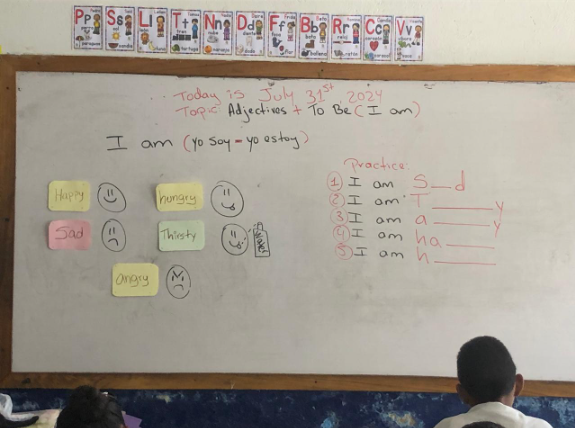 Pp Ss Ll Tt Nn Dd Ff Bb Rr Cc Vv
Today is July 31st, 2024
Topic: Adjectives + To Be (I am)
I am (yo soy - yo estoy)
Happy
hungry
Sad
Thirsty
angry
Practice:
1 I am S__d
2 I am T______y
3 I am a______y
4 I am ha_____
5 I am h______